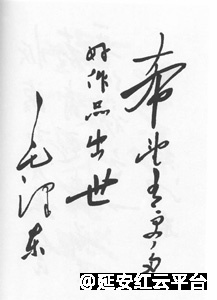 希望有更多
好作品出世
毛泽东
@延安红云平台